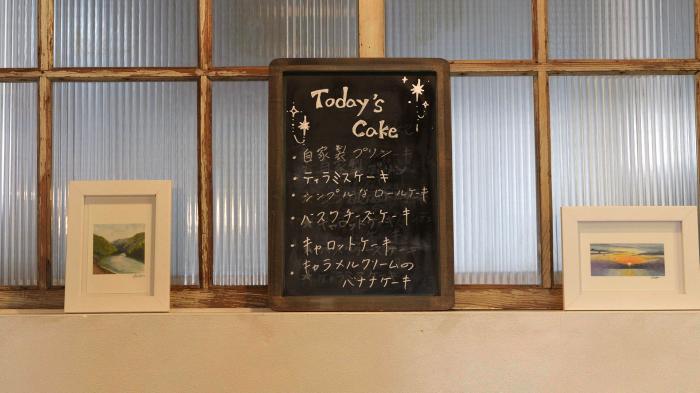 Today's
Cake
・自家製 プリン
・ティラミスケーキ
・シンプルなロールケーキ
・バスクチーズケーキ
・キャロットケーキ
・キャラメルクリームの
バナナケーキ